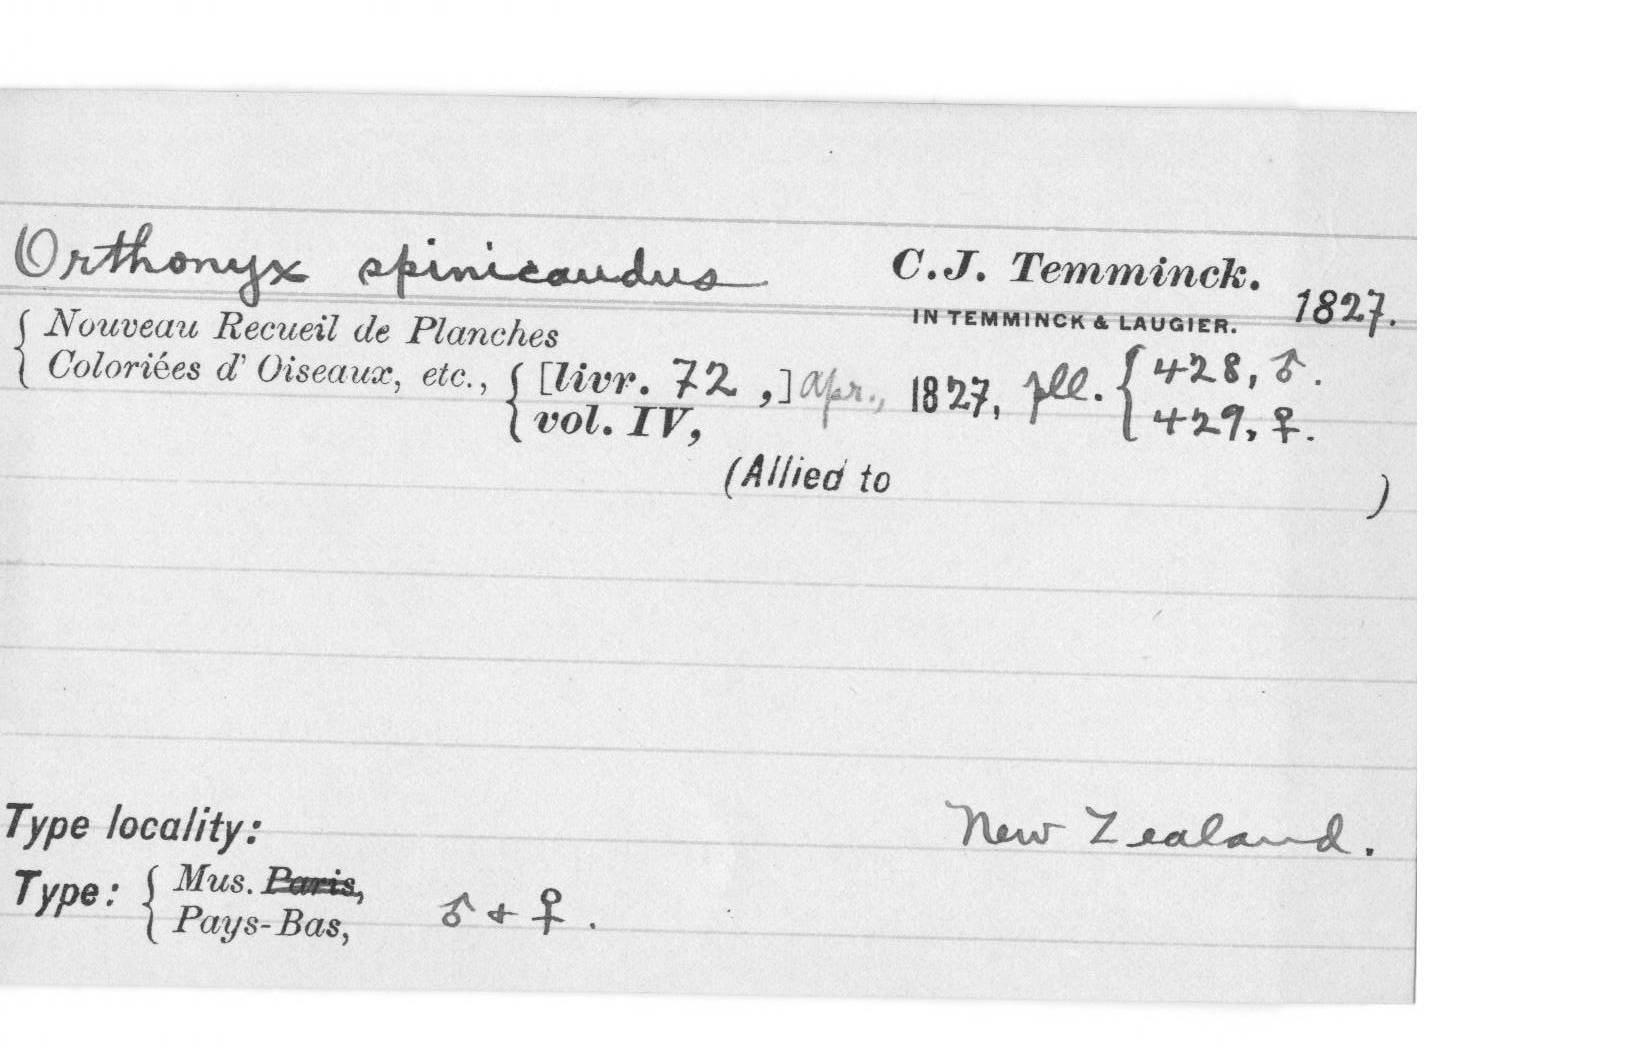 Orthonyx spinicaudus C.J. Temminck.
IN TEMMINCK & LAUGIER. 1827.
{ Nouveau Recueil de Planches
Coloriées d' Oiseaux, etc., { [livr. 72 ,] Apr., 1827, pll. { 428, ♂.
vol. IV, 429, ♀.
(Allied to )
Type locality: New Zealand.
Type: { Mus. Paris,
Pays-Bas, ♂ + ♀ .